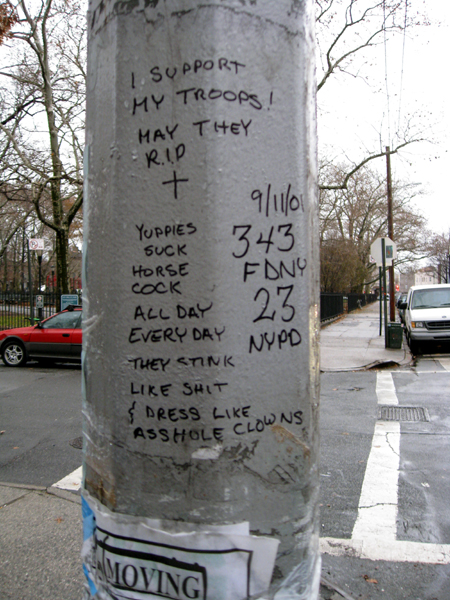 I SUPPORT
MY TROOPS!
MAY THEY
R.I.P
9/11/01
343
FDNY
23
NYPD
YUPPIES
SUCK
HORSE
COCK
ALL DAY
EVERY DAY
THEY STINK
LIKE SHIT
& DRESS LIKE
ASSHOLE CLOWNS
MOVING